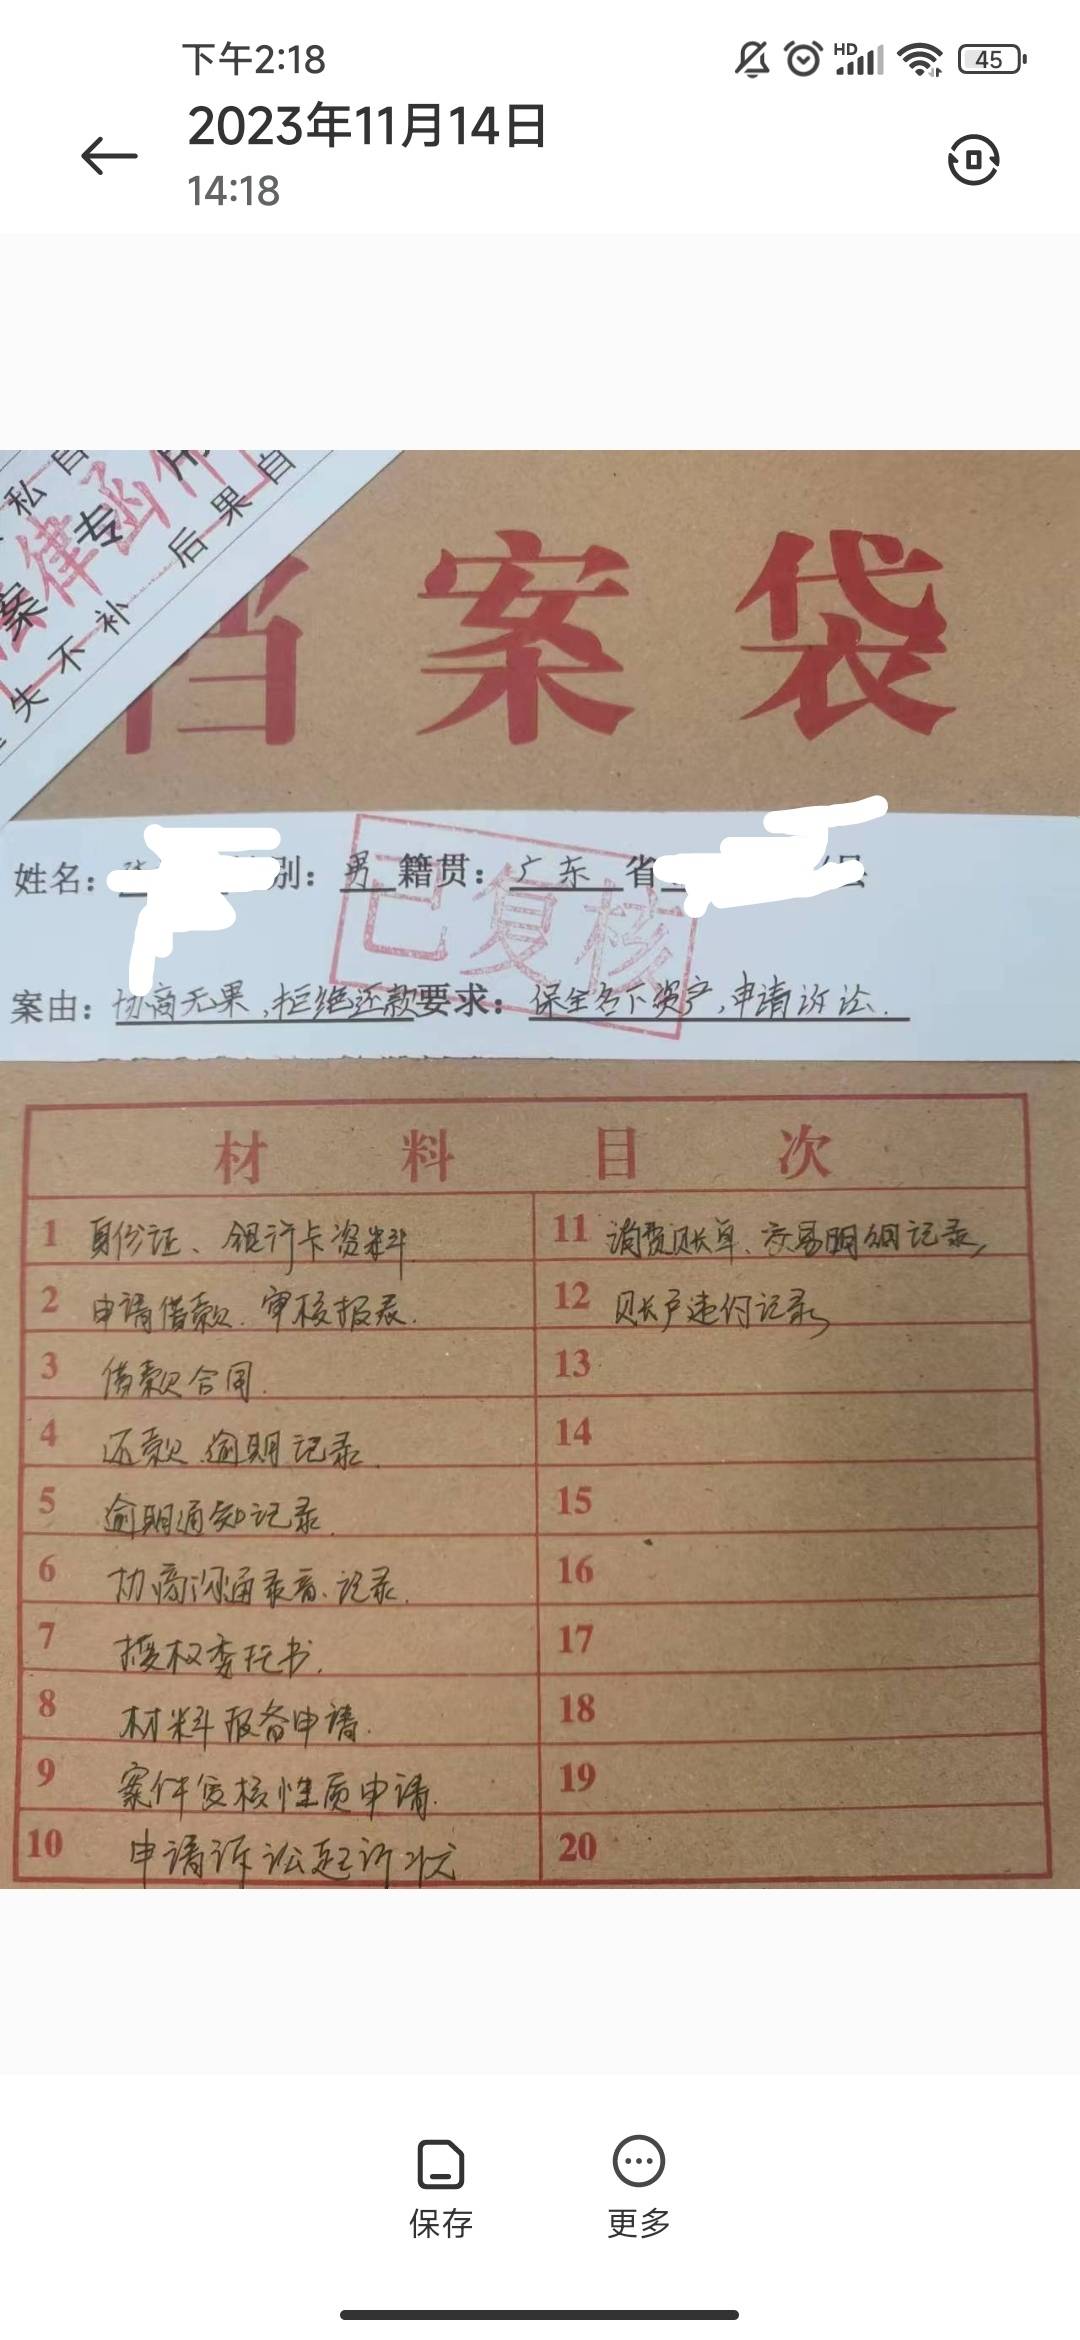 下午2:18
HD
45
2023年11月14日
14:18
私自
律函件
案专用
失不补 后果自
档案袋
姓名： 别：男 籍贯：广东省 县
已复核
案由：协商无果，拒绝还款要求：保全名下资产，申请诉讼.
材料目次
1 身份证、银行卡资料
11 消费账单、交易明细记录,
2 申请借款、审核报表.
12 账户违约记录
3 借款合同.
13
4 还款、逾期记录.
14
5 逾期通知记录.
15
6 协商沟通录音、记录.
16
7 授权委托书.
17
8 材料报备申请.
18
9 案件复核性质申请.
19
10 申请诉讼起诉状
20
保存
更多